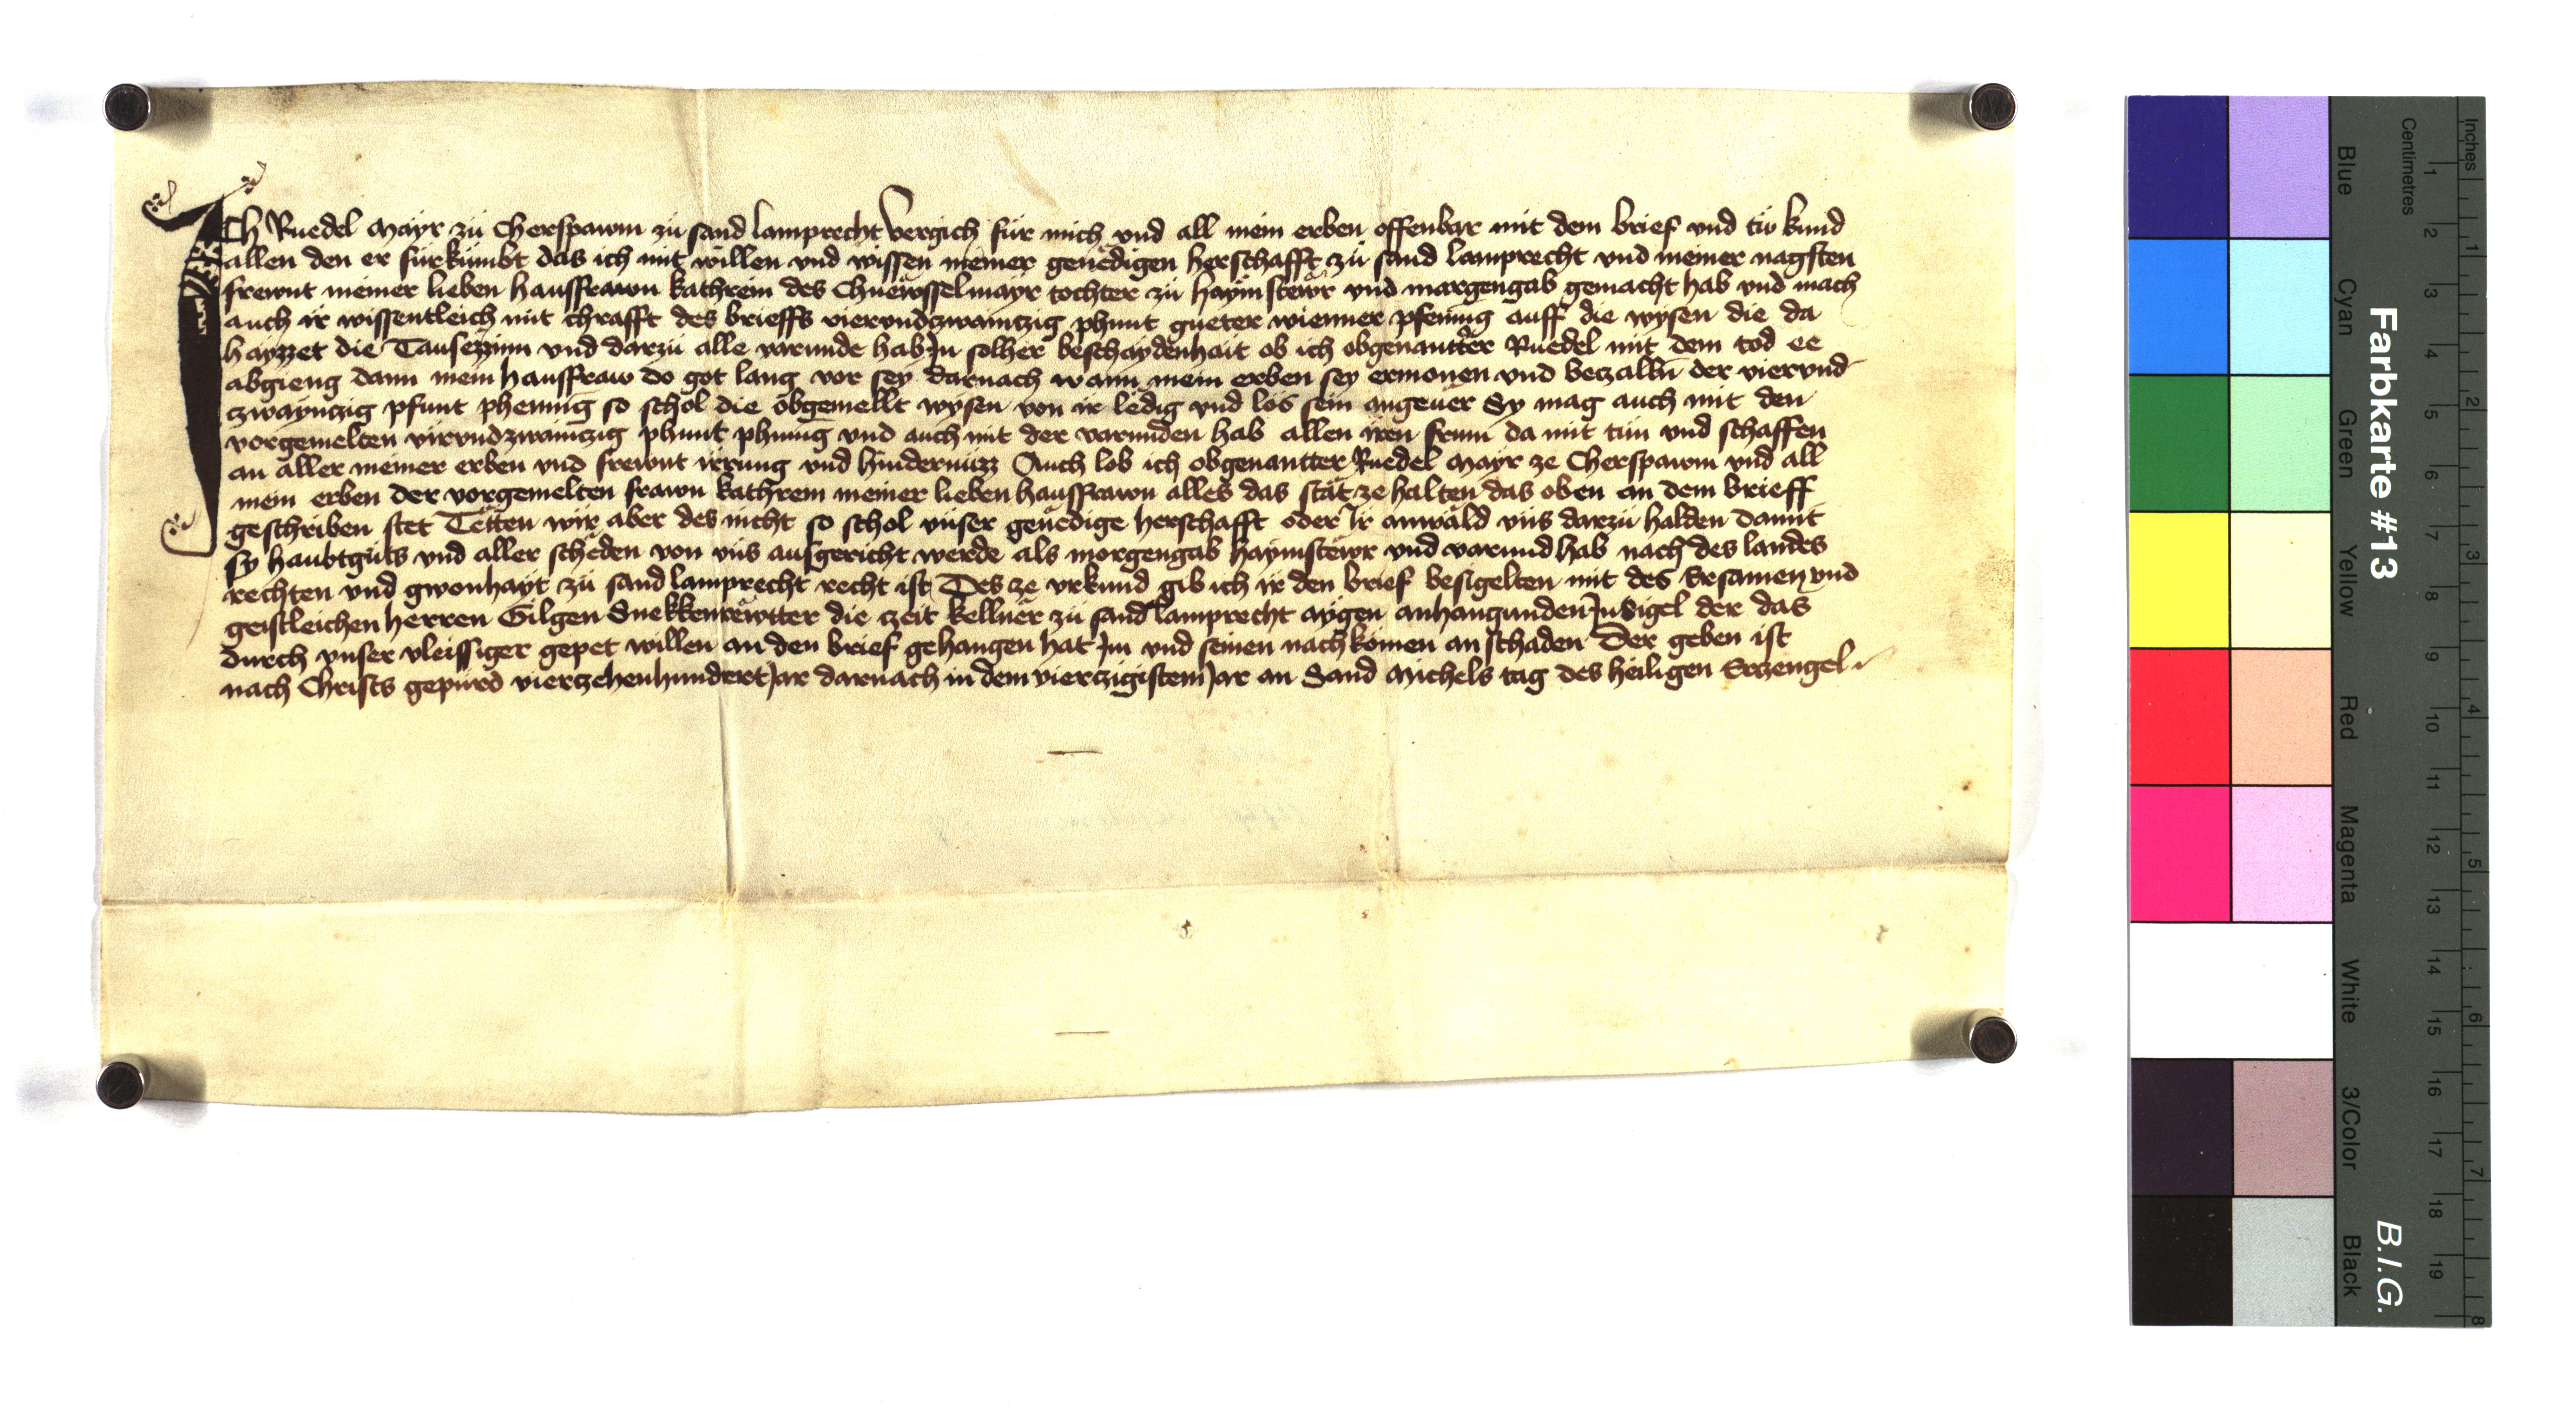 ICh Ruedel Mayr zu Cherspawm zu sand lamprecht Vergich für mich vnd all mein erben offenbar mit dem brief vnd tw kund
allen den er fürkümbt das ich mit willen vnd wissen meiner genëdigen herschafft zu sand lamprecht vnd meiner nagsten
frewnt meiner lieben hausfrawn kathrein des Chuewsselmayr tochter zu haymstewr vnd margengab gemacht hab vnd mach
auch ir wissentleich mit chrafft des brieffs viervndzwaintzig phunt gueter wienner pfennig auff die wysen die da
hayzzet die Tausezzinn vnd darzu alle varunde hab Jn solher beschaydenhait ob ich obgenantter Ruedel mit dem tod ee
abgieng dann mein hausfraw do got lang vor sey Darnach wann mein erben sey ermonen vnd beczalln der viervnd
zwaynczig pfunt phennig so schol die obgemellt wysen von ir ledig vnd los sein angeuer Sy mag auch mit den
vorgemelten virvndzwaintzig phunt phening vnd auch mit der varunden hab allen iren frum da mit tun vnd schaffen
an aller meiner erben vnd frewnt irrung vnd hindernüzz Auch lob ich obgenantter Ruedel Mayr ze Cherspawm vnd all
mein erben der vorgemelten frawn kathrein meiner lieben hausfrawn alles das stät ze halten das oben an dem brieff
geschriben stet Tetten wir aber des nicht so schol vnser genëdige herschafft oder Ir anwäld vns darzu halden damit
sy haubtguts vnd aller schëden von vns ausgericht werde als morgengab haymstewr vnd varund hab nach des landes
rechten vnd gwonhayt zu sand lamprecht recht ist Des ze vrkund gib ich ir den brief besigelten mit des Ersamen vnd
geistleichen herren Gilgen Snekkenrewtter die zeit kellner zu sand lamprecht aygen anhangunden Jnsigel der das
durch vnser vleissiger gepet willen an den brief gehangen hat Im vnd seinen nachkomen an schaden Der geben ist
nach Christs gepurd vierzehenhundert Jar darnach in dem vierzigistem Jar an Sand Michels tag des heiligen Erczengel
Inches
Centimetres
Farbkarte #13
B.I.G.
Blue
Cyan
Green
Yellow
Red
Magenta
White
3/Color
Black
1 2 3 4 5 6 7 8 9 10 11 12 13 14 15 16 17 18 19
1 2 3 4 5 6 7 8